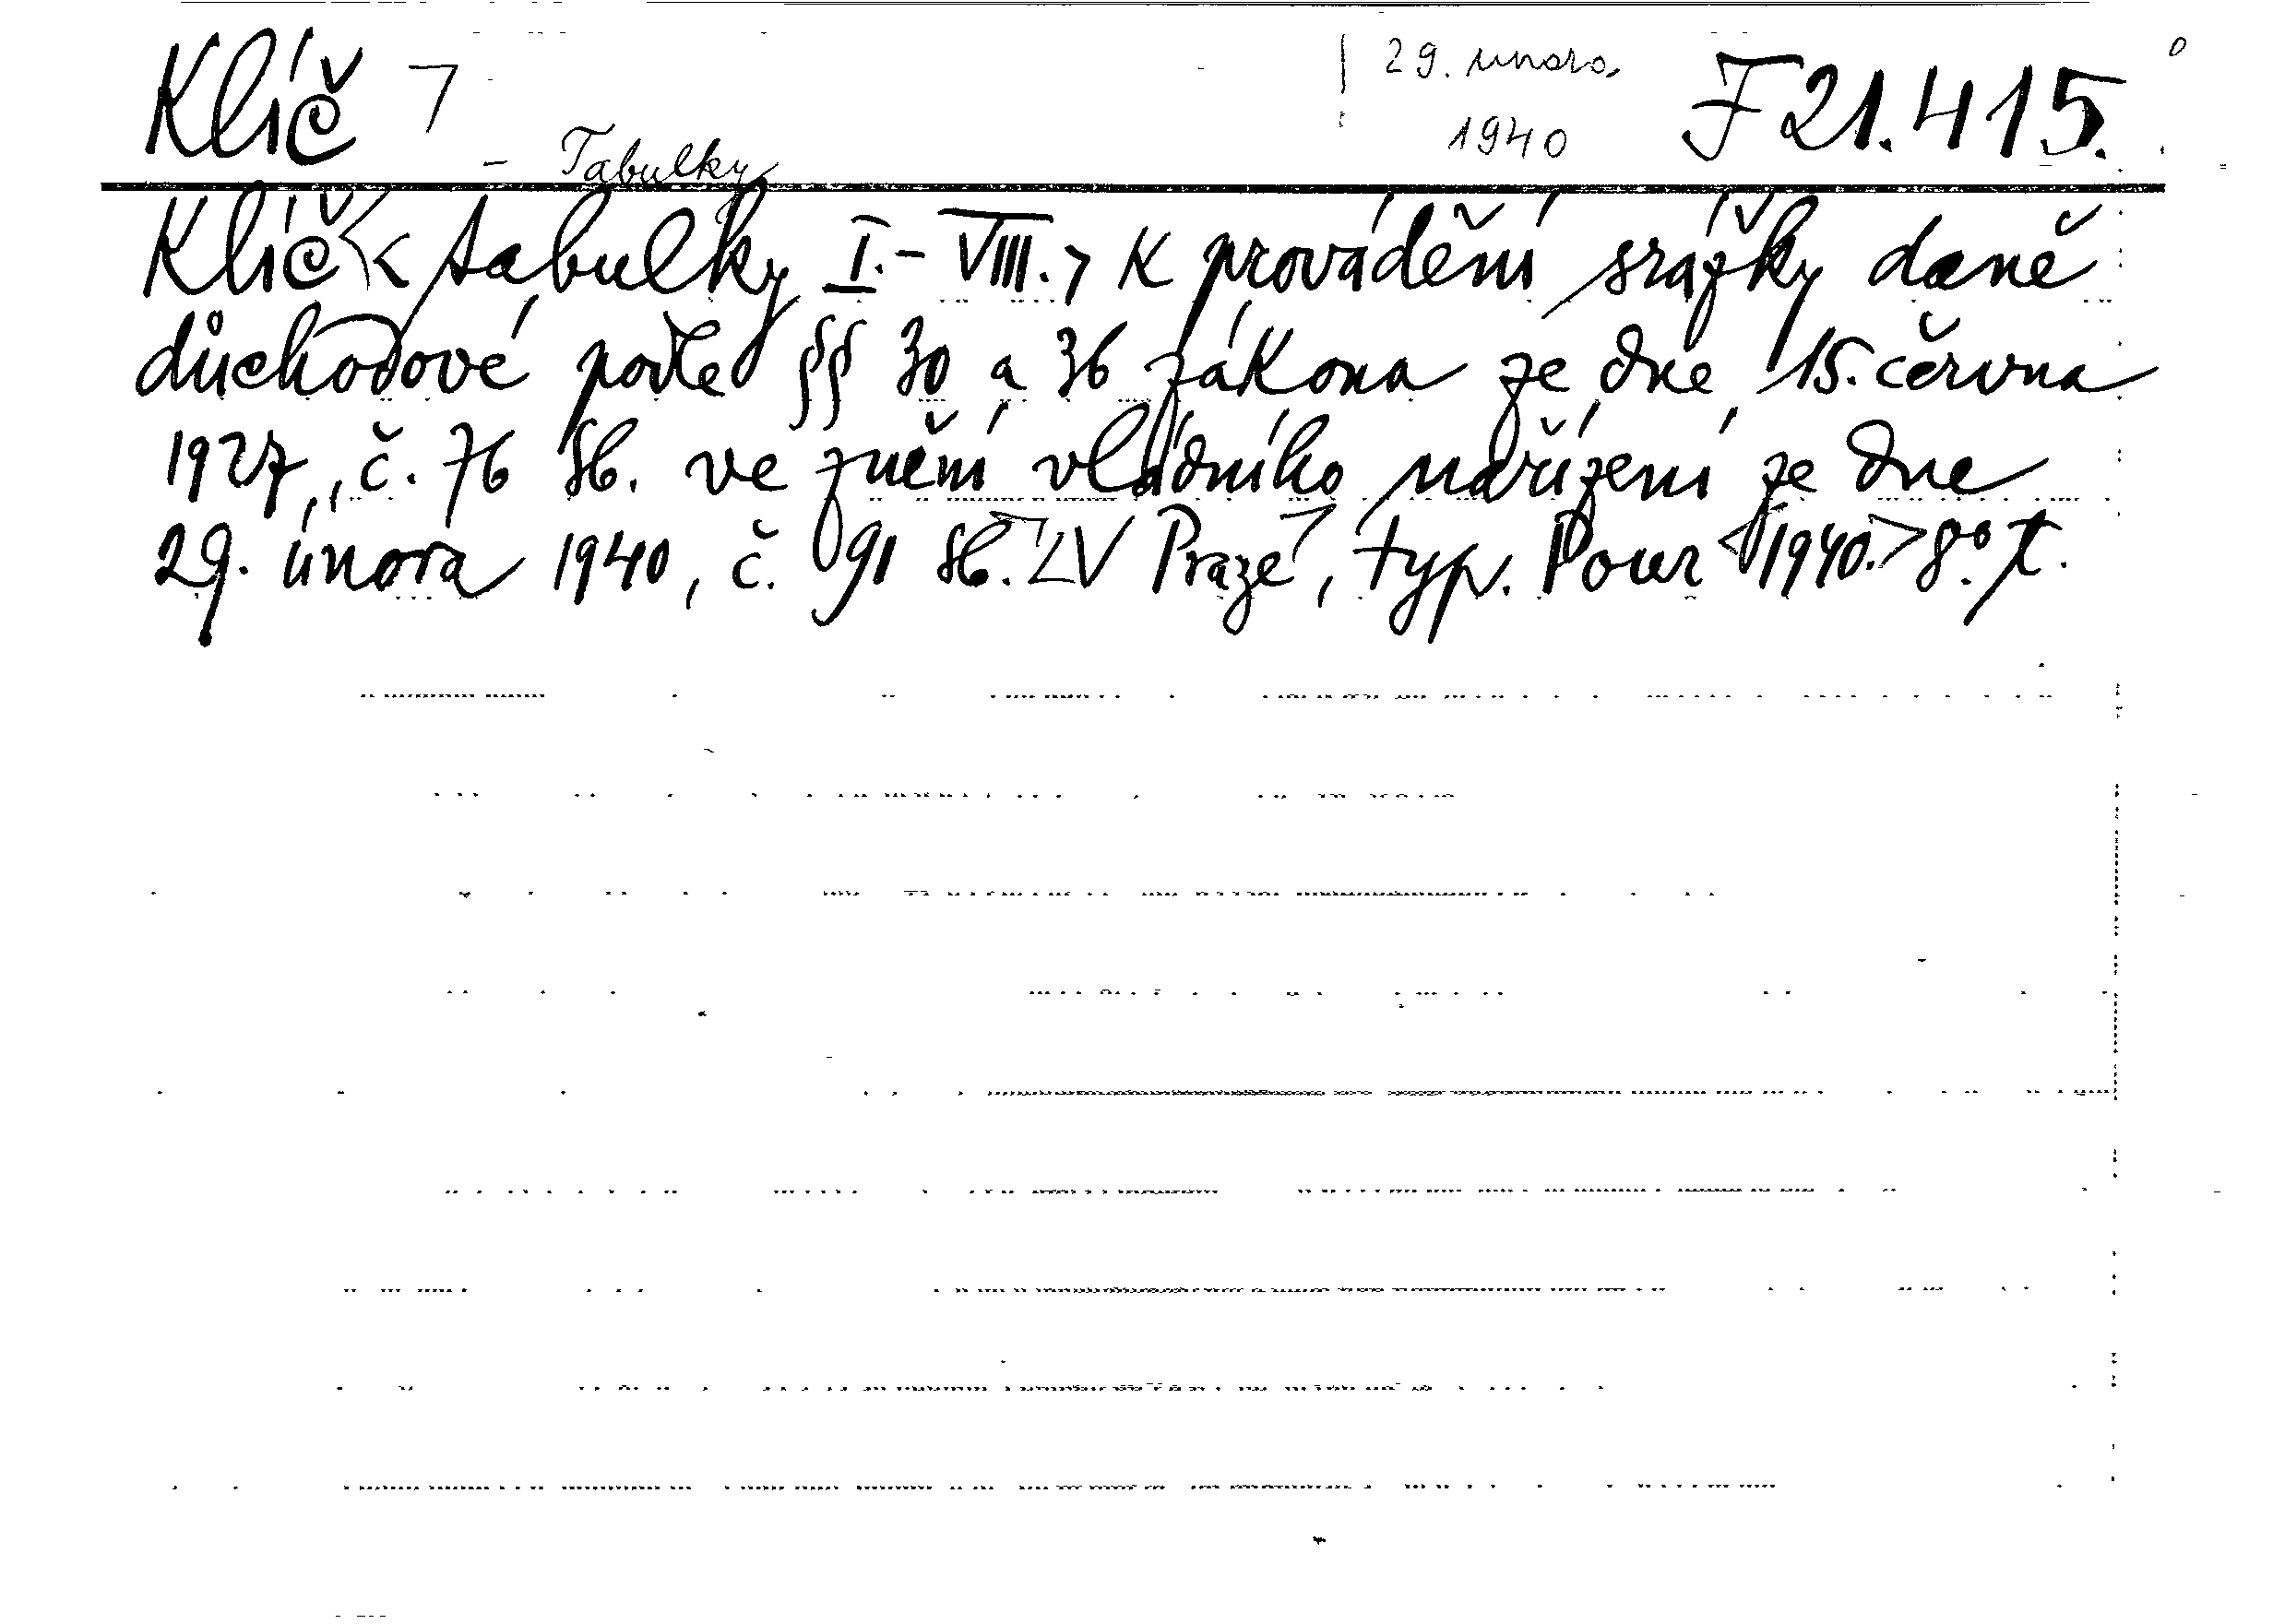 Klíč
- Tabulky
29. února
1940
F 21.415.
Klíč < tabulky I.- VIII. > k provádění srážky daně
důchodové podle §§ 30 a 36 zákona ze dne 15. června
1927, č. 76 Sb. ve znění vládního nařízení ze dne
29. února 1940, č. 91 Sb. V Praze, typ. Pour <1940.> 8° t.